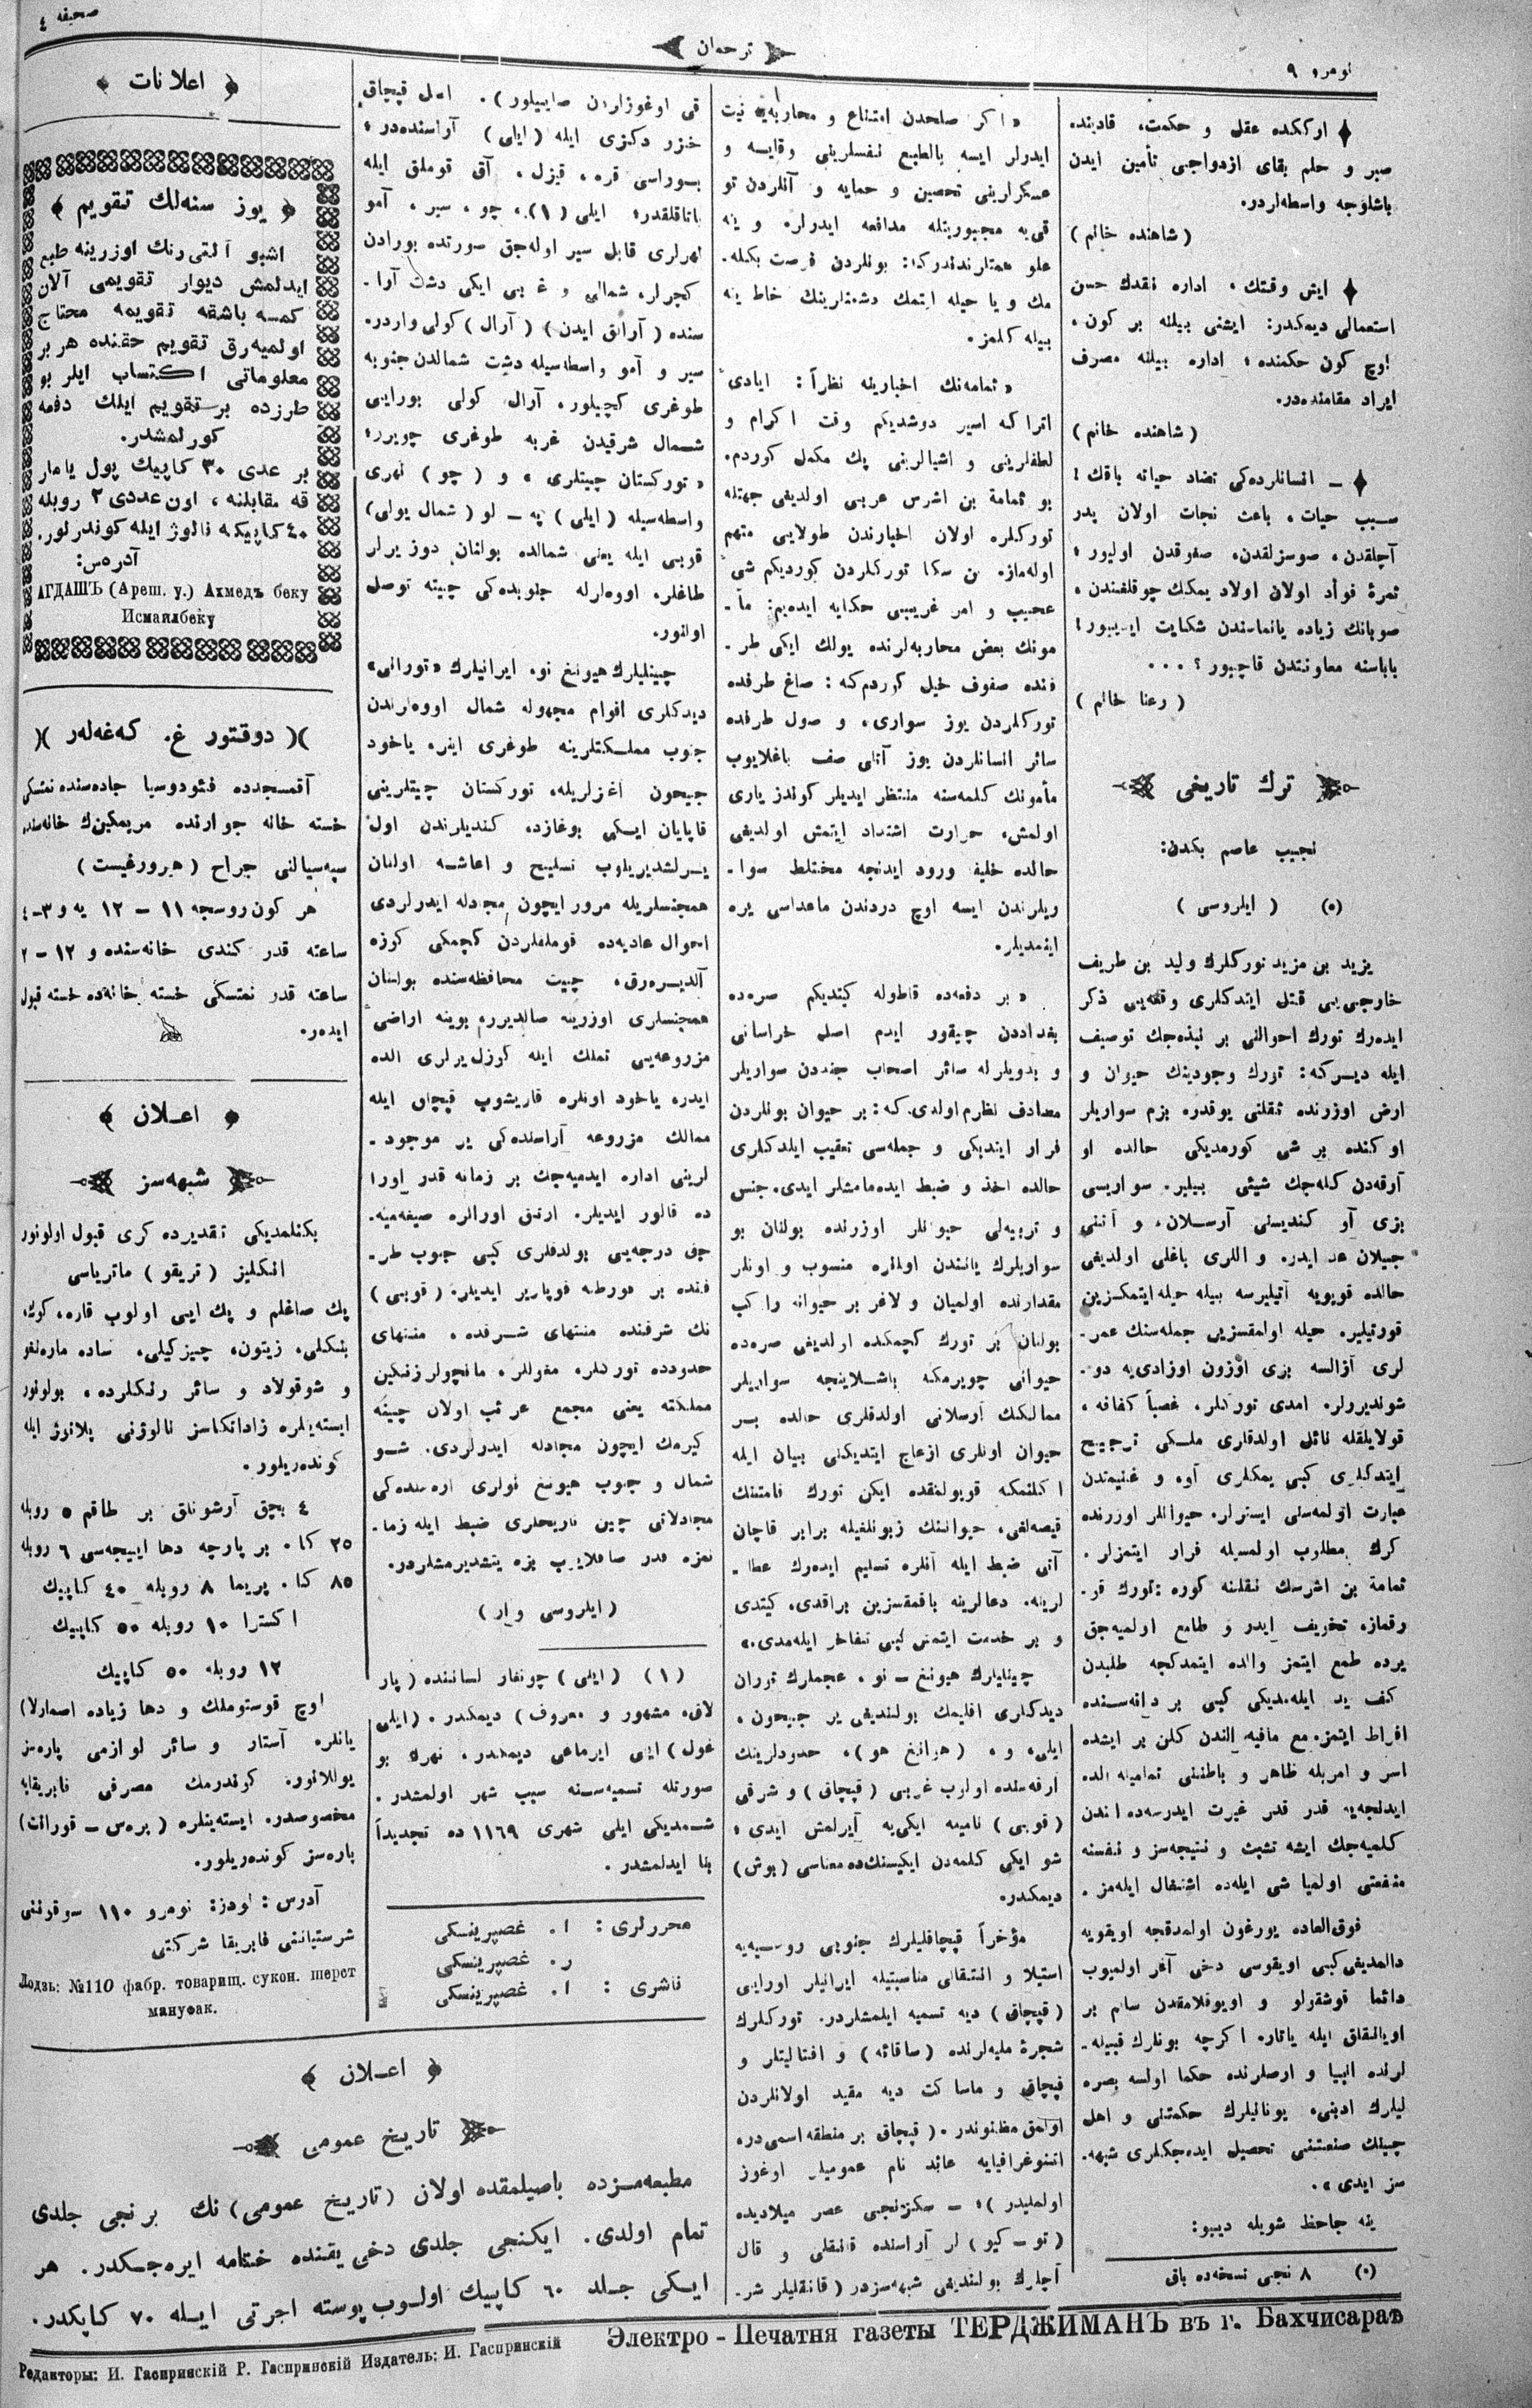 نومرو ۹
ترجمان
صحیفه ٤
ارککده عقل و حکمت، قادینده
صبر و حلم بقای ازدواجی تأمین ایدن
باشلوجه واسطه‌لردر.
(شاهنده خانم)
ایش وقتک، اداره نقدک حسن
استعمالی دیمکدر: ایشنی بیلنه بر کون،
اوچ کون حکمنده؛ اداره بیلنه مصرف
ایراد مقامنده‌در.
(شاهنده خانم)
– انسانلرده‌کی تضاد حیاته باقك!
سبب حیات، باعث نجات اولان پدر
آچلقدن، صوسزلقدن، صغوقدن اولیور؛
ثمرهٔ فوأد اولان اولاد یمكك چوقلغندن،
صوبانك زیاده یانماسندن شکایت ایدییور!
باباسنه معاونتدن قاچیور؟ ...
(رعنا خانم)
ترك تاریخی
نجیب عاصم بکدن:
(٥) (ایلروسی)
یزید بن مزید تورکلرك ولید بن طریف
خارجی‌یی قتل ایتدکلری وقعه‌یی ذکر
ایده‌رك تورك احوالنی بر نبذه‌جك توصیف
ایله دیـرکه: تورك وجودینك حیوان و
ارض اوزرنده ثقلتی یوقدر. بزم سواریلر
اوکنده بر شی کورمدیکی حالده او
آرقه‌دن کله‌جك شیئی بیلیر. سواریسی
بزی آو کندیسنی آرسلان، و آتنی
جیلان عد ایدر. و اللری باغلی اولدیغی
حالده قویویه آتیلیرسه بیله حیله ایتمکسزین
قورتیلیر. حیله اولمقسزین جمله‌سنك عمر-
لری آزالسه بزی اوزون اوزادی‌یه دو-
شوندیرولر. امدی تورکلر، غصباً کفافه،
قولایلقله نائل اولدقلری ملـکی ترجیح
ایتدکلری کبی یمکلری آو، و غنیمتدن
عبارت اولمه‌سنی ایسترلر. حیوانلر اوزرنده
کرك مطلوب اولمسیله فرار ایتمزلر.
ثمامة بن اشرسك نقلنه کوره: تورك قو-
رقماز، تخویف ایدر و طامع اولمیه‌جق
یرده طمع ایتمز والده ایتمدکجه طلبدن
کف ید ایله‌مدیکی کبی بر دانه‌سـنده
افراط ایتمز. مع مافیه الندن کلن بر ایشده
اسر و امریله ظاهر و باطننی تمامیله الده
ایدنجه‌یه قدر غیرت ایدرسه‌ده الندن
کلمیه‌جك ایشه تشبث و نتیجه‌سز و نفسنه
منفعتی اولمیا شی ایله‌ده اشتغال ایله‌مز.
فوق‌العاده یورغون اولمدقجه اویقویه
دالمدیغی کبی اویقوسی دخی آغر اولمیوب
دائما قوشقولو و اویوقلامقدن سالم بر
اویانیقلق ایله یاتار. اکرچه بونلرك قبیله-
لرنده انبیا و ارضلرنده حکما اولسه بصره
لیلرك ادبنی، یونانیلرك حکمتنی و اهل
چینك صنعتنی تحصیل ایده‌جکلری شبهه.
سز ایدی».
ینه جاحظ شویله دیییو:
(٥) ۸ نجی نسخه‌ده باق
«اکر صلحدن امتناع و محاربه‌یه نیت
ایدرلر ایسه بالطبع نفسلرینی وقایه‌ و
عسکرلرینی تحصین و حمایه و آنلردن تو
قی‌یه مجبوریتله مدافعه ایدرلر. و ینه
علو همتلرنده‌ندرکه: بونلردن فرصت بکله.
مك و یا حیله ایتمك دشمنلرینك خاطرینه
بیله کلمز.
«ثمامه‌نك اخبارینه نظراً: ایادئ
اتراکه اسیر دوشدیکم وقت اکرام و
لطفلرینی و اشیالرینی پك مکمل کوردم.
بو ثمامة بن اشرس عربی اولدیغی جهتله
تورکلره اولان اخبارندن طولایی متهم
اوله‌ماز. بن سکا تورکلردن کوردیکم شئ
عجیب و امر غریبی حکایه ایده‌یم: مأ-
مونك بعض محاربه‌لرنده یولك ایکی طر-
فنده صفوف خیل کوردم‌که: صاغ طرفده
تورکلردن یوز سواری، و صول طرفده
سائر انسانلردن یوز آتلی صف باغلایوب
مأمونك کلمه‌سنه منتظر ایدیلر کوندز یاری
اولمش، حرارت اشتداد ایتمش اولدیغی
حالده خلیفه ورود ایدنجه مختلط سوا-
ریلرندن ایسه اوچ دردندن ماعداسی یره
اینمدیلر.
«بر دفعه‌ده قاطوله کیتدیکم صره‌ده
بغداددن چیقیور ایدم اصله خراسانی
و بدویلرله سائر اصحاب جنددن سواریلر
مصادف نظرم اولدی.که: بر حیوان بونلردن
فرار ایتدیکی و جمله‌سی تعقیب ایلدکلری
حالده اخذ و ضبط ایده‌مامشلر ایدی. جنس
و تربیه‌لی حیوانلر اوزرنده بولنان بو
سواریلرك یانندن اونلره منسوب و اونلر
مقدارنده اولمیان و لاغر بر حیوانه راکب
بولنان بر تورك کچمکده اولدیغی صره‌ده
حیوانی چویرمکه باشـلاینجه سواریلر
ممالكك آرسلانی اولدقلری حالده بـر
حیوان اونلری ازعاج ایتدیکنی بیان ایله
اکلنمکه قویولمقده ایکن تورك قامتنك
قیصه‌لغی، حیواننك زبونلغیله برابر قاچان
آتی ضبط ایله آنلره تسلیم ایده‌رك عطا-
لرینه. دعالرینه باقمقسزین براقدی. کیتدی
و بر خدمت ایتمش کبی تفاخر ایله‌مدی.»
چینلیلرك هیونغ – نو، عجملرك توران
دیدکلری اقلیمك بولندیغی یر جیحون،
ایلی، و، (هوانغ هو)، حدودلرینك
ارقه‌سنده اولوب غربی (قپچاق) و شرقی
(قوبی) نامیله ایکی‌یه آیرلمش ایدی؛
شو ایکی کلمه‌دن ایکیسنك‌ده معناسی (بوش)
دیمکدر.
مؤخراً قپچاقلیلرك جنوبی روسیه‌یه
استیلا و انتقالی مناسبتیله ایرانیلر اورایی
(قپچاق) دیه تسمیه ایلمشلردر. تورکلرك
شجرهٔ ملیه‌لرنده (ساقائه) و افتالیتلر و
قپچاق و ماساکت دیه مقید اولانلردن
اولمق مظنوندر. (قپچاق بر منطقه اسمی‌در،
اتنوغرافیایه عائد نام عمومیلر اوغوز
اولملیدر)؛ – سکزنجی عصر میلادیده
(تو – کیو) لر آراسنده قانقلی و قال
آچلرك بولندیغی شبهه‌سزدر (قانقلیلر شر.
قی اوغوزلردن صاییلور). اصل قپچاق
خزر دکزی ایله (ایلی) آراسنده‌در؛
بوراسی قره، قیزل، آق قوملق ایله
باتاقلقدر؛ ایلی (۱)، چو، سیر، آمو
نهرلری قابل سیر اوله‌جق صورتده بورادن
کچرلر، شمالی و غربی ایکی دشت آرا-
سنده (آرالق ایدن) (آرال) کولی واردر.
سیر و آمو واسطه‌سیله دشت شمالدن جنوبه
طوغری کچیلور. آرال کولی بورایی
شـمال شرقیدن غربه طوغری چویرر؛
«تورکستان چیتلری» و (چو) نهری
واسطه‌سیله (ایلی) په – لو (شمال یولی)
قوبی ایله یعنی شمالده بولنان دوز یرلر
طاغلر، اووه‌لرله جنوبده‌کی چینه توصل
اولنور.
چینلیلرك هیونغ نو، ایرانیلرك «تورانی»
دیدکلری اقوام مجهوله شمال اووه‌لرندن
جنوب مملـکتلرینه طوغری اینر، یاخود
جیحون آغزلریله، تورکستان چیتلرینی
قاپایان ایـکی بوغازده کندیلرندن اول
یـرلشدیریلوب تسلیح و اعاشـه اولنان
همجنسلریله مرور ایچون مجادله ایدرلردی
احوال عادیه‌ده قوملقلردن کچمکی کوزه
آلدیـره‌رق، چیت محافظه‌سنده بولنان
همجنسلری اوزرینه صالدیرر، بوینه اراضئ
مزروعه‌یی تملك ایله کوزل یرلری الده
ایدر. یاخود اونلره قاریشوب قپچاق ایله
ممالك مزروعه آراسنده‌کی یر موجود-
لرینی اداره ایدمیه‌جك بر زمانه قدر اورا
ده قالور ایدیلر. ارتق اورالره صیغه‌میه.
جق درجه‌یی بولدقلری کبی جنوب طر-
فنده بر فورطنه قوپاریر ایدیلر. (قوبی)
نك شرقنده منتهای شـرقده، منتهای
حدودده تورکلر، مغوللر، مانچولر زنکین
مملکته یعنی مجمع غرائب اولان چینه
کیرمك ایچون مجادله ایدرلردی. شـو
شمال و جنوب هیونغ نولری اره‌سنده‌کی
مجادلاتی چین تاریخلری ضبط ایله زما-
نمزه قدر صاقلایوب بزه یتشدیرمشلردر.
(ایلروسی وار)
(۱) (ایلی) چونغار لساننده (پار
لاق، مشهور و معروف) دیمکدر. (ایلی
غول) ایلی ایرماغی دیمکدر، نهرك بو
صورتله تسمیه‌سـنه سبب شهر اولمشدر.
شـمدیکی ایلی شهری ۱۱٦۹ ده تجدیداً
بنا ایدلمشدر.
محررلری: ا. غصپرینسکی
ر. غصپرینسکی
ناشری: ا. غصپرینسکی
اعلانات
یوز سنه‌لك تقویم
اشبو آلتی رنك اوزرینه طبع
ایدلمش دیوار تقویمی آلان
کمسه باشقه تقویمه محتاج
اولمیه‌رق تقویم حقنده هر بر
معلوماتی اکتساب ایلر بو
طرزده بر تقویم ایلك دفعه
کورلمشدر.
بر عددی ۳۰ کاپیك پول یا مار
قه مقابلنه، اون عددی ۲ روبله
٤۰ کاپیکه نالوژ ایله کوندرلور.
آدره‌س:
АГДАШЪ (Ареш. у.) Ахмедъ беку
Исмаилбеку
دوقتور غ. که‌غه‌له‌ر
آقمسجدده فئودوسیا جاده‌سنده نمتسکی
خسته خانه جوارنده مریمکین‌ك خانه‌سنده
سپه‌سیالنی جراح (هیرورغیست)
هر کون روسجه ۱۱ – ۱۲ یه و ۳–٤
ساعته قدر کندی خانه‌سنده و ۱۲ – ۲
ساعته قدر نمتسکی خسته خانه‌ده خسته قبول
ایده‌ر.
اعـلان
شبهه‌سز
بکنلمدیکی تقدیرده کری قبول اولونور
انکلیز (تریقو) ماتریاسی
پك صاغلم و پك ایی اولوب قاره، کوك،
بنکلی، زیتون، چیزکیلی، ساده مارنغو
و شوقولاد و سائر رنکلرده، بولونور
ایسته‌ینلره زاداتکاسز نالوژنی پلاتوژ ایله
کونده‌ریلور.
٤ بچق آرشونلق بر طاقم ٥ روبله
۲٥ کا. بر پارچه دها اییجه‌سی ٦ روبله
۸٥ کا. پریما ۸ روبله ٤۰ کاپیك
اکسترا ۱۰ روبله ٥۰ کاپیك
۱۲ روبله ٥۰ کاپیك
اوچ قوستوملك و دها زیاده اسمارلا
یانلره آستار و سائر لوازمی پاره‌سز
یوللانور. کوندرمك مصرفی فابریقایه
مخصوصدر. ایسته‌ینلره (پره‌س – قورانت)
پاره‌سز کونده‌ریلور.
آدرس: لودز: نومرو ۱۱۰ سوقوننی
شرستیاننی فابریقا شرکتی
Лодзь: №110 фабр. товарищ. сукон. шерст
мануфак.
اعـلان
تاریخ عمومی
مطبعه‌مـزده باصیلمقده اولان (تاریخ عمومی) نك برنجی جلدی
تمام اولدی. ایکنجی جلدی دخی یقنده ختامه ایره‌جـکدر. هر
ایـکی جـلد ٦۰ کاپیك اولـوب پوسته اجرتی ایـله ۷۰ کاپکدر.
Электро - Печатня газеты ТЕРДЖИМАНЪ въ г. Бахчисараѣ
Редакторы: И. Гаспринскій Р. Гаспринскій Издатель: И. Гаспринскій